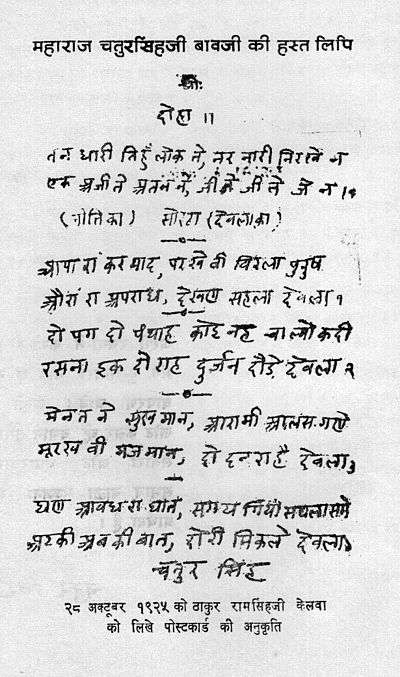 महाराज चतुरसिंहजी बावजी की हस्त लिपि
श्रीः
दोहा ॥
तन धारी तिहुँ लोक ने, नर नारी निरखे न
एक अजीते अतनने, जीते जीते जे न १
(नीतिका) सोरठा (देवलाका)
आपा रां कर याद, परखे वी विरला पुरुष
औरां रा अपराध, देखण सहला देवला १
दो पग दो पंथाह कोई नह चाल्यो कदी
रसना इक दो राह दुर्जन दौड़े देवला २
मेनत ने सुख मान, आरामी आलस गणे
मूरख वी मजमान, दो दन रा है देवला ३
घण आवध रा घात, समय
अटकी अब की वात, दोरी निकले देवला
चतुर सिंह
२८ अक्टूबर १९२५ को ठाकुर रामसिंहजी केलवा
को लिखे पोस्टकार्ड की अनुकृति